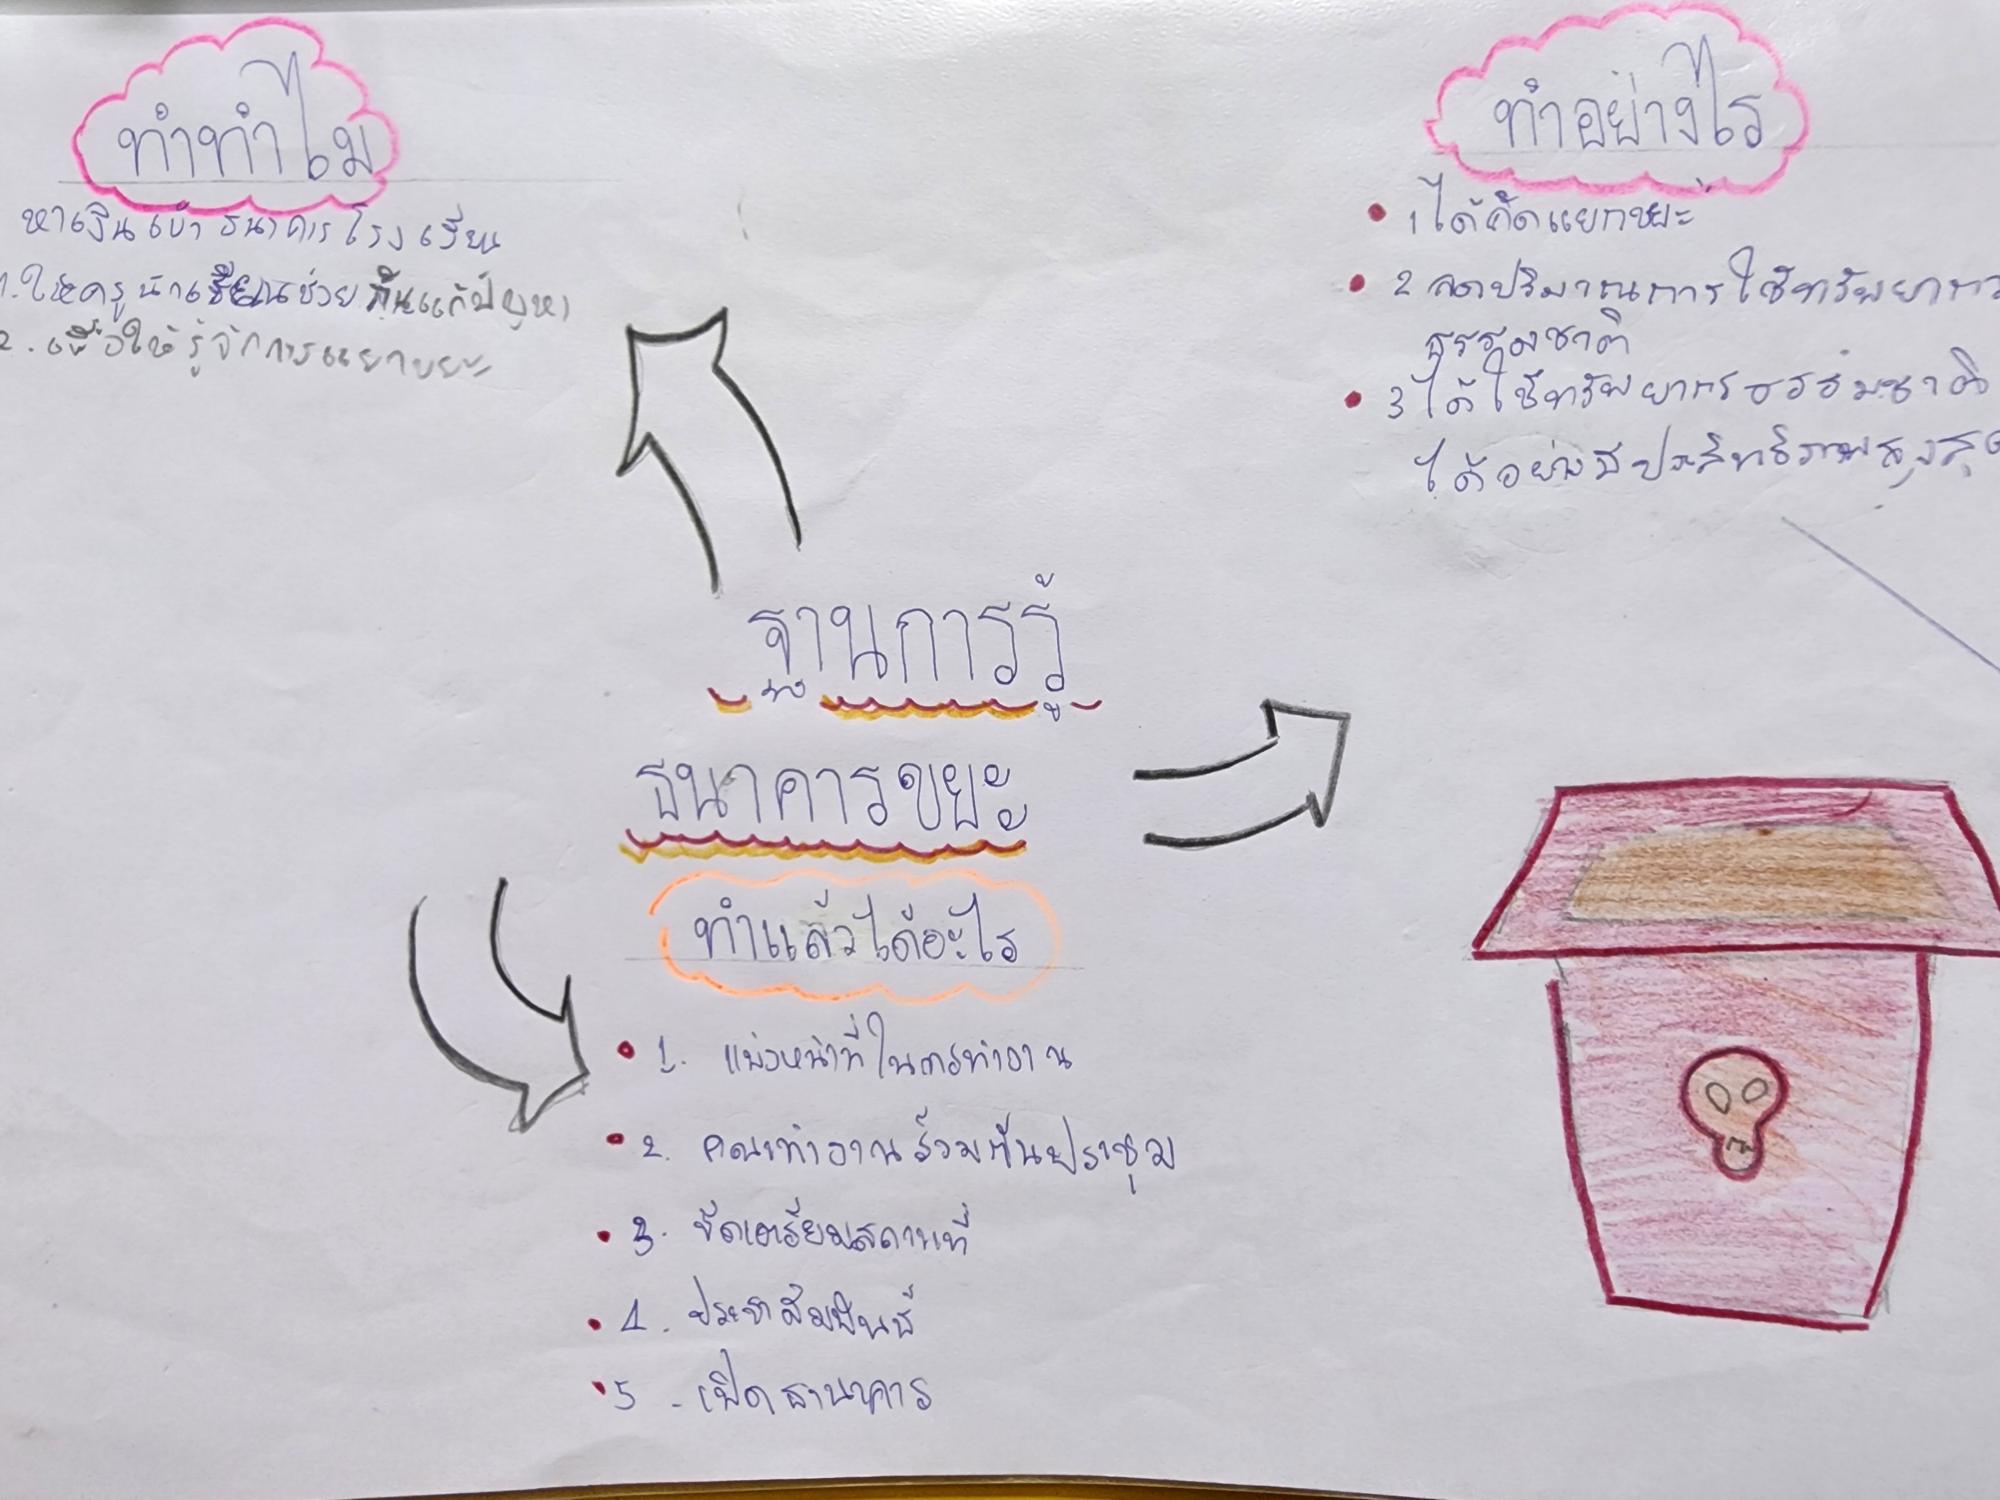 ทำทำไม
หาเงินเข้าธนาคารโรงเรียน
1.ให้ครูนักเรียนช่วยกันแก้ปัญหา
2.เพื่อให้รู้จักการแยกขยะ
ทำอย่างไร
1 ได้คัดแยกขยะ
2 ลดปริมาณการใช้ทรัพยากร
ธรรมชาติ
3 ได้ใช้ทรัพยากรธรรมชาติ
ได้อย่างมีประสิทธิภาพสูงสุด
ฐานการรู้
ธนาคารขยะ
ทำแล้วได้อะไร
1. แบ่งหน้าที่ในการทำงาน
2. คณะทำงานร่วมกันประชุม
3. จัดเตรียมสถานที่
4. ประชาสัมพันธ์
5 - เปิดธานาคาร